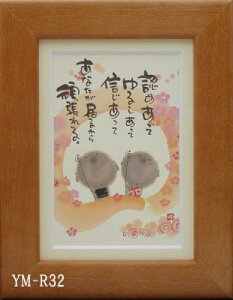 認めあって
ゆるしあって
信じあって
あなたが居るから
頑張れる。
YM-R32